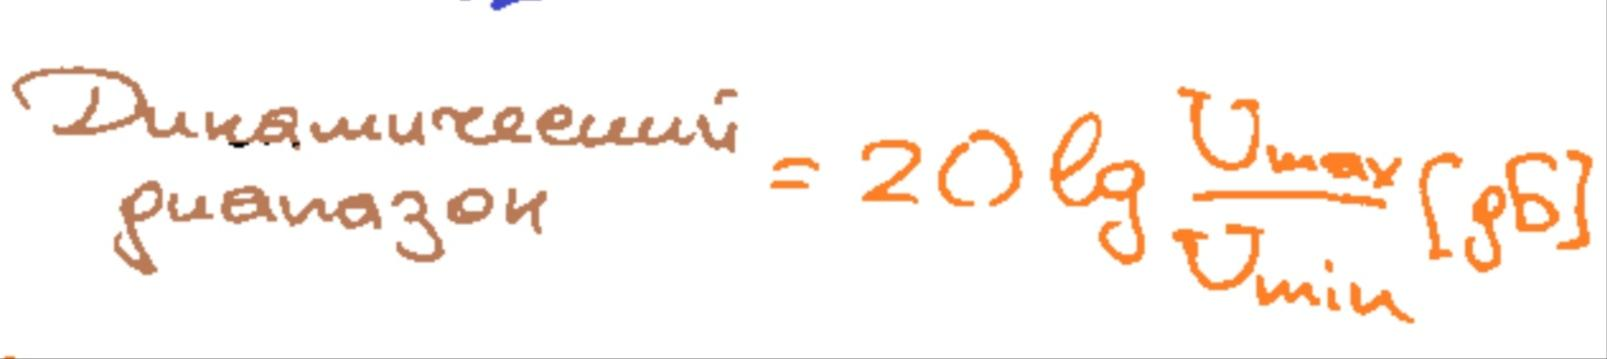 Динамический
диапазон = 20 lg Umax / Umin [дб]